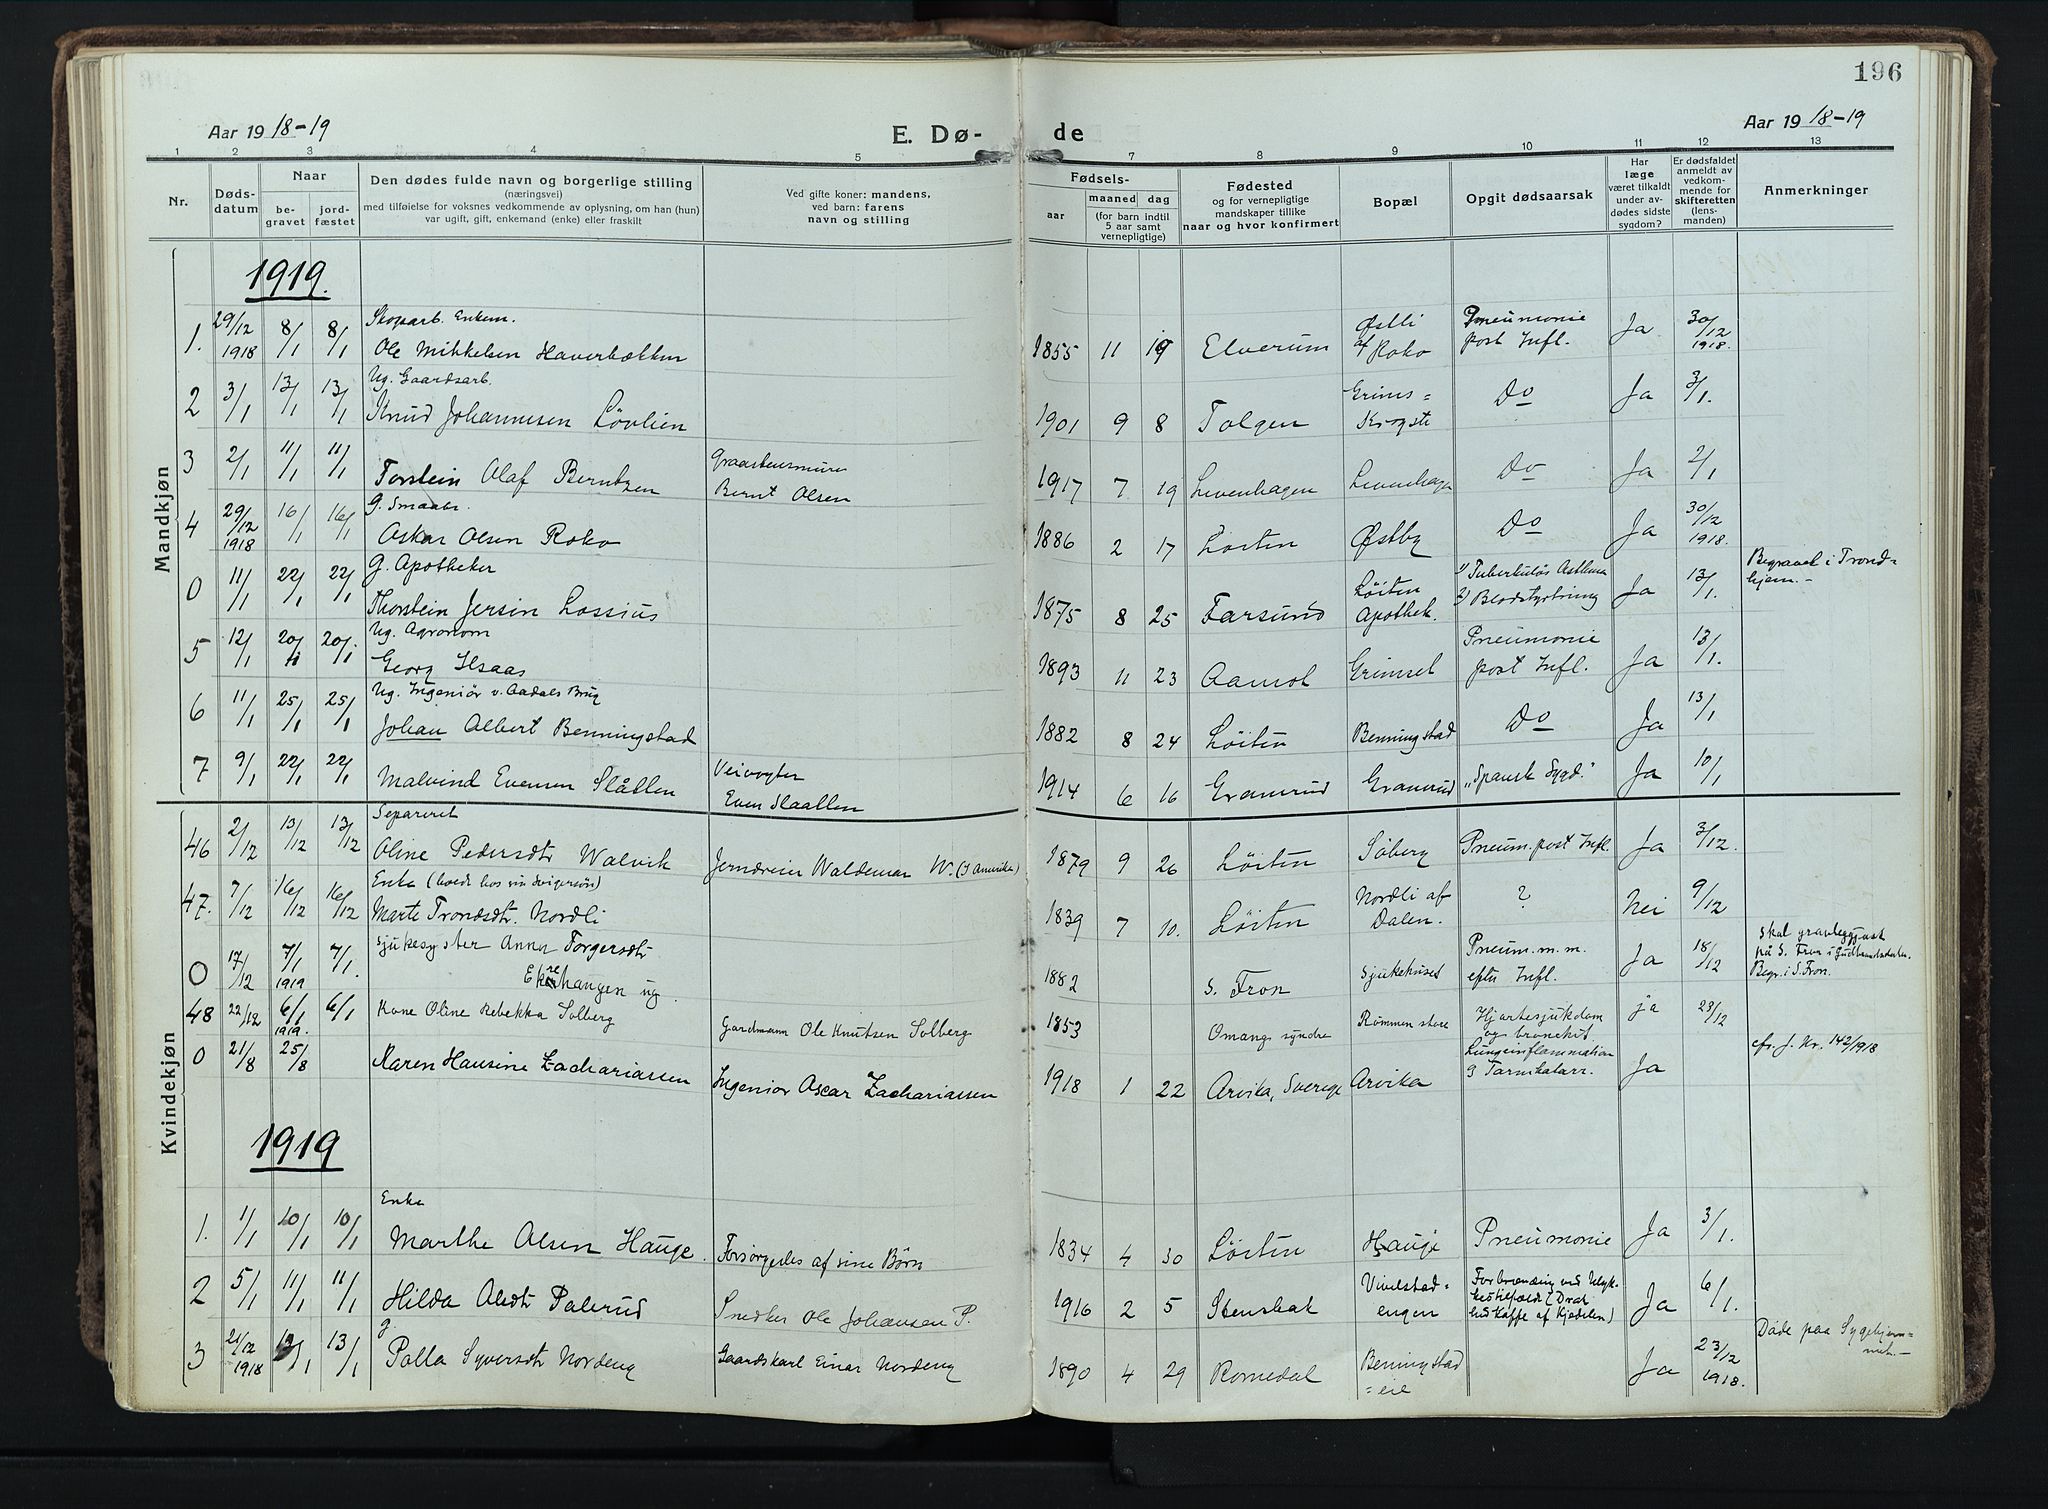 196
Aar 19 18-19
E. Dø- de
Aar 19 18-19
1 2 3 4 5 7 8 9 10 11 12 13
Nr.
Døds-
datum
Naar
be-
gravet
jord-
fæstet
Den dødes fulde navn og borgerlige stilling
(næringsvei)
med tilføielse for voksnes vedkommende av oplysning, om han (hun)
var ugift, gift, enkemand (enke) eller fraskilt
Ved gifte koner: mandens,
ved barn: farens
navn og stilling
Fødsels-
aar
maaned dag
(for barn indtil
5 aar samt
vernepligtige)
Fødested
og for vernepligtige
mandskaper tillike
naar og hvor konfirmert
Bopæl
Opgit dødsaarsak
Har
læge
været tilkaldt
under av-
dødes sidste
sygdom?
Er dødsfaldet
anmeldt av
vedkom-
mende for
skifteretten
(lens-
manden)
Anmerkninger
Mandkjøn
1919.
1. 29/12 1918 8/1 8/1 Skogarb. Enkem.
Ole Mikkelsen Haverbækken 1855 11 19 Elverum Østli af Roko Pneumonie post Infl. Ja 30/12 1918.
2 3/1 13/1 13/1 Ug. Gaardsarb.
Knud Johannesen Løvlien 1901 9 8 Tolgen Grims= Krogste Do Ja 3/1.
3 2/1 11/1 11/1 Torstein Olaf Berntzen Graastensmurer Bernt Olsen 1917 7 19 Levenhagen Levenhagen Do Ja 2/1
4 29/12 1918 16/1 16/1 G. Smaabr.
Oskar Olsen Roko 1886 2 17 Løiten Østby Do Ja 30/12 1918.
0 11/1 22/1 22/1 G. Apotheker
Thorstein Jersin Lossius 1875 8 25 Farsund Løiten Apothek. 1) Tuberkuløs Asthma 2) Blodstyrtning Ja 13/1. Begravet i Trond= hjem.-
5 12/1 20/1 20/1. Ug. Agronom
Georg Ilsaas 1893 11 23 Aamot Grimset Pneumonie post Infl. Ja 13/1.
6 11/1 25/1 25/1 Ug. Ingeniør v. Aadals Brug
Johan Albert Benningstad 1882 8 24 Løiten Benningstad Do Ja 13/1
7 9/1 22/1 22/1 Malvind Evensen Slåtten Veivogter Even Slaatten 1914 6 16 Gramrud Gramrud "Spansk Sygd." Ja 10/1
Kvindekjøn
46 2/12 13/12 13/12 Separeret
Oline Pedersdtr Walvik Jerndreier Waldemar W. (I Amerika) 1879 9 26 Løiten Søberg Pneum. post Infl. Ja 3/12.
47. 7/12 16/12 16/12 Enke (boede hos sin svigersøn)
Marte Trondsdtr. Nordli 1839 7 10. Løiten Nordli af Dalen. ? Nei 9/12
0 17/12 7/1 1919 7/1. Sjukesyster Anna Torgersdtr
Ekrehangen ug. 1882 S. Fron Sjukehuset Pneum. m. m. efter Infl. Ja 18/12 Skal gravleggjast på S. Fron i Gudbrandsdalen. Begr. i S. Fron.
48 22/12 6/1 1919. 6/1 Kone Oline Rebekka Solberg Gardmann Ole Knutsen Solberg 1853 Omang syndre Rømmen store Hjartesjukdom og bronchit. ja 23/12
0 21/8 25/8 Karen Hansine Zachariassen Ingeniør Oscar Zachariassen 1918 1 22 Arvika, Sverige Arvika Lungeinflammation & Tarmkatarr. Ja cfr. J. Nr. 142/1918
1919
1. 1/1 10/1 10/1 Enke
Marthe Olsen Hauge. Forsørgedes af sine Børn 1834 4 30 Løiten Hauge Pneumonie Ja 3/1.
2 5/1 11/1 11/1 Hilda Olsdtr Palerud Snedker Ole Johansen P. 1916 2 5 Stensbak Vivelstad- engen Forbrænding ved Ulyk- kestilfælde (Drak hed Kaffe af Kjedelen) Ja 6/1.
3 21/12 1918 13/1 13/1 g.
Polla Syversdtr Nordeng Gaardskarl Einar Nordeng 1890 4 29 Romedal Benningstad =eie Ja 23/12 1918. Døde paa Sygehjem= met.-